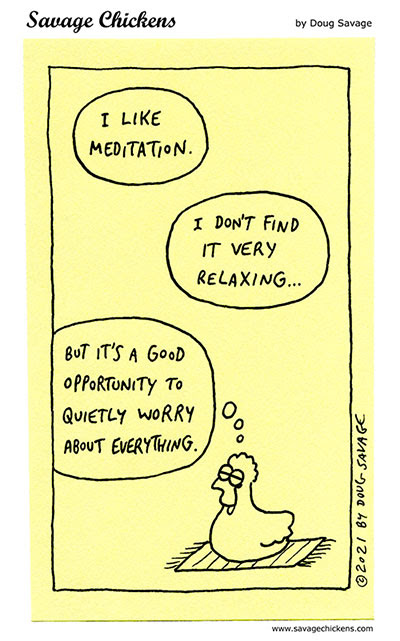 Savage Chickens
by Doug Savage
I LIKE
MEDITATION.
I DON'T FIND
IT VERY
RELAXING...
BUT IT'S A GOOD
OPPORTUNITY TO
QUIETLY WORRY
ABOUT EVERYTHING.
©2021 BY DOUG SAVAGE
www.savagechickens.com